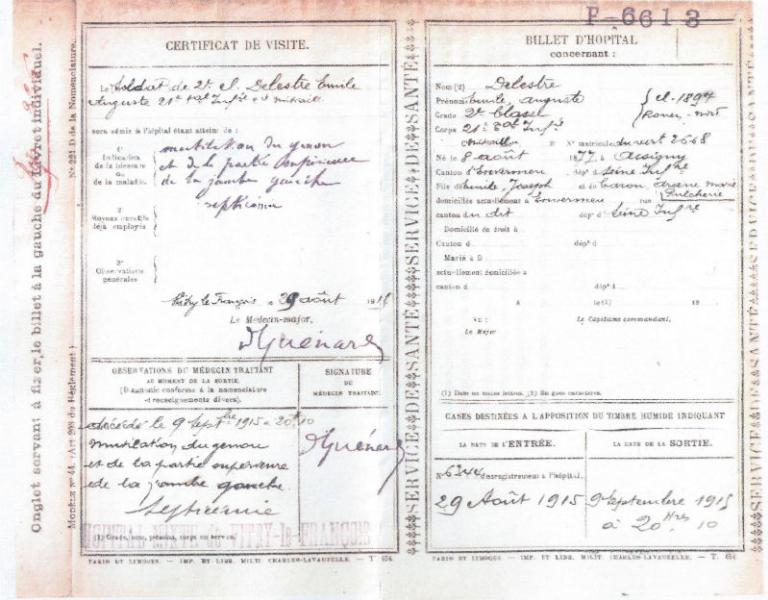 F-6613
Onglet servant à fixer le billet à la gauche du livret individuel.
N° 221 D de la Nomenclature.
Modèle N° 44. (Art 208 du Règlement)
CERTIFICAT DE VISITE.
Le Soldat de 2e cl. Delestre Emile
Auguste 21e
sera admis à l'hôpital étant atteint de :
1°
Indication
de la blessure
ou
de la maladie.
mutilation du genou
et de la partie supérieure
de la jambe gauche
septicémie
2°
Moyens curatifs
déjà employés
3°
Observations
générales
Vitry le François, le 29 août 1915
Le Médecin-major,
D Guénard
OBSERVATIONS DU MÉDECIN TRAITANT
AU MOMENT DE LA SORTIE.
(Diagnostic conforme à la nomenclature
et renseignements divers).
SIGNATURE
DU
MÉDECIN TRAITANT.
décédé le 9 Septbre 1915 à 20h10
mutilation du genou
et de la partie supérieure
de la jambe gauche.
Septicémie
D Guénard
(1) Grade, nom, prénoms, corps ou service.
HOPITAL MIXTE de VITRY-le-FRANÇOIS
PARIS ET LIMOGES. — IMP. ET LIBR. MILIT. CHARLES-LAVAUZELLE. — T. 654
SERVICE DE SANTÉ SERVICE DE SANTÉ
BILLET D'HOPITAL
concernant :
Nom (2) Delestre
Prénoms Emile Auguste
Grade 2e classe
Corps 21e
cl. 1897
Rouen-nord
N° matricule 2668
Né le 8 août 1877, à Assigny
Canton d'Envermeu dépt de Seine Infre
Fils de Emile, Joseph et de Caron, Arsène Marie
Pulcherie
domiciliés actuellement à Envermeu rue
canton du dit dépt de Seine Infre
Domicilié de droit à
Canton d dépt d
Marié à D
actuellement domiciliée à
canton d dépt d
A le (1) 19
Vu :
Le Major
Le Capitaine commandant,
(1) Date en toutes lettres. (2) En gros caractères.
CASES DESTINÉES A L'APPOSITION DU TIMBRE HUMIDE INDIQUANT
LA DATE DE L'ENTRÉE.
LA DATE DE LA SORTIE.
N° 6244 d'enregistrement à l'hôpital.
29 Août 1915
9 Septembre 1915
à 20 Hres 10
PARIS ET LIMOGES. — IMP. ET LIBR. MILIT. CHARLES-LAVAUZELLE. — T. 654
SERVICE DE SANTÉ SERVICE DE SANTÉ